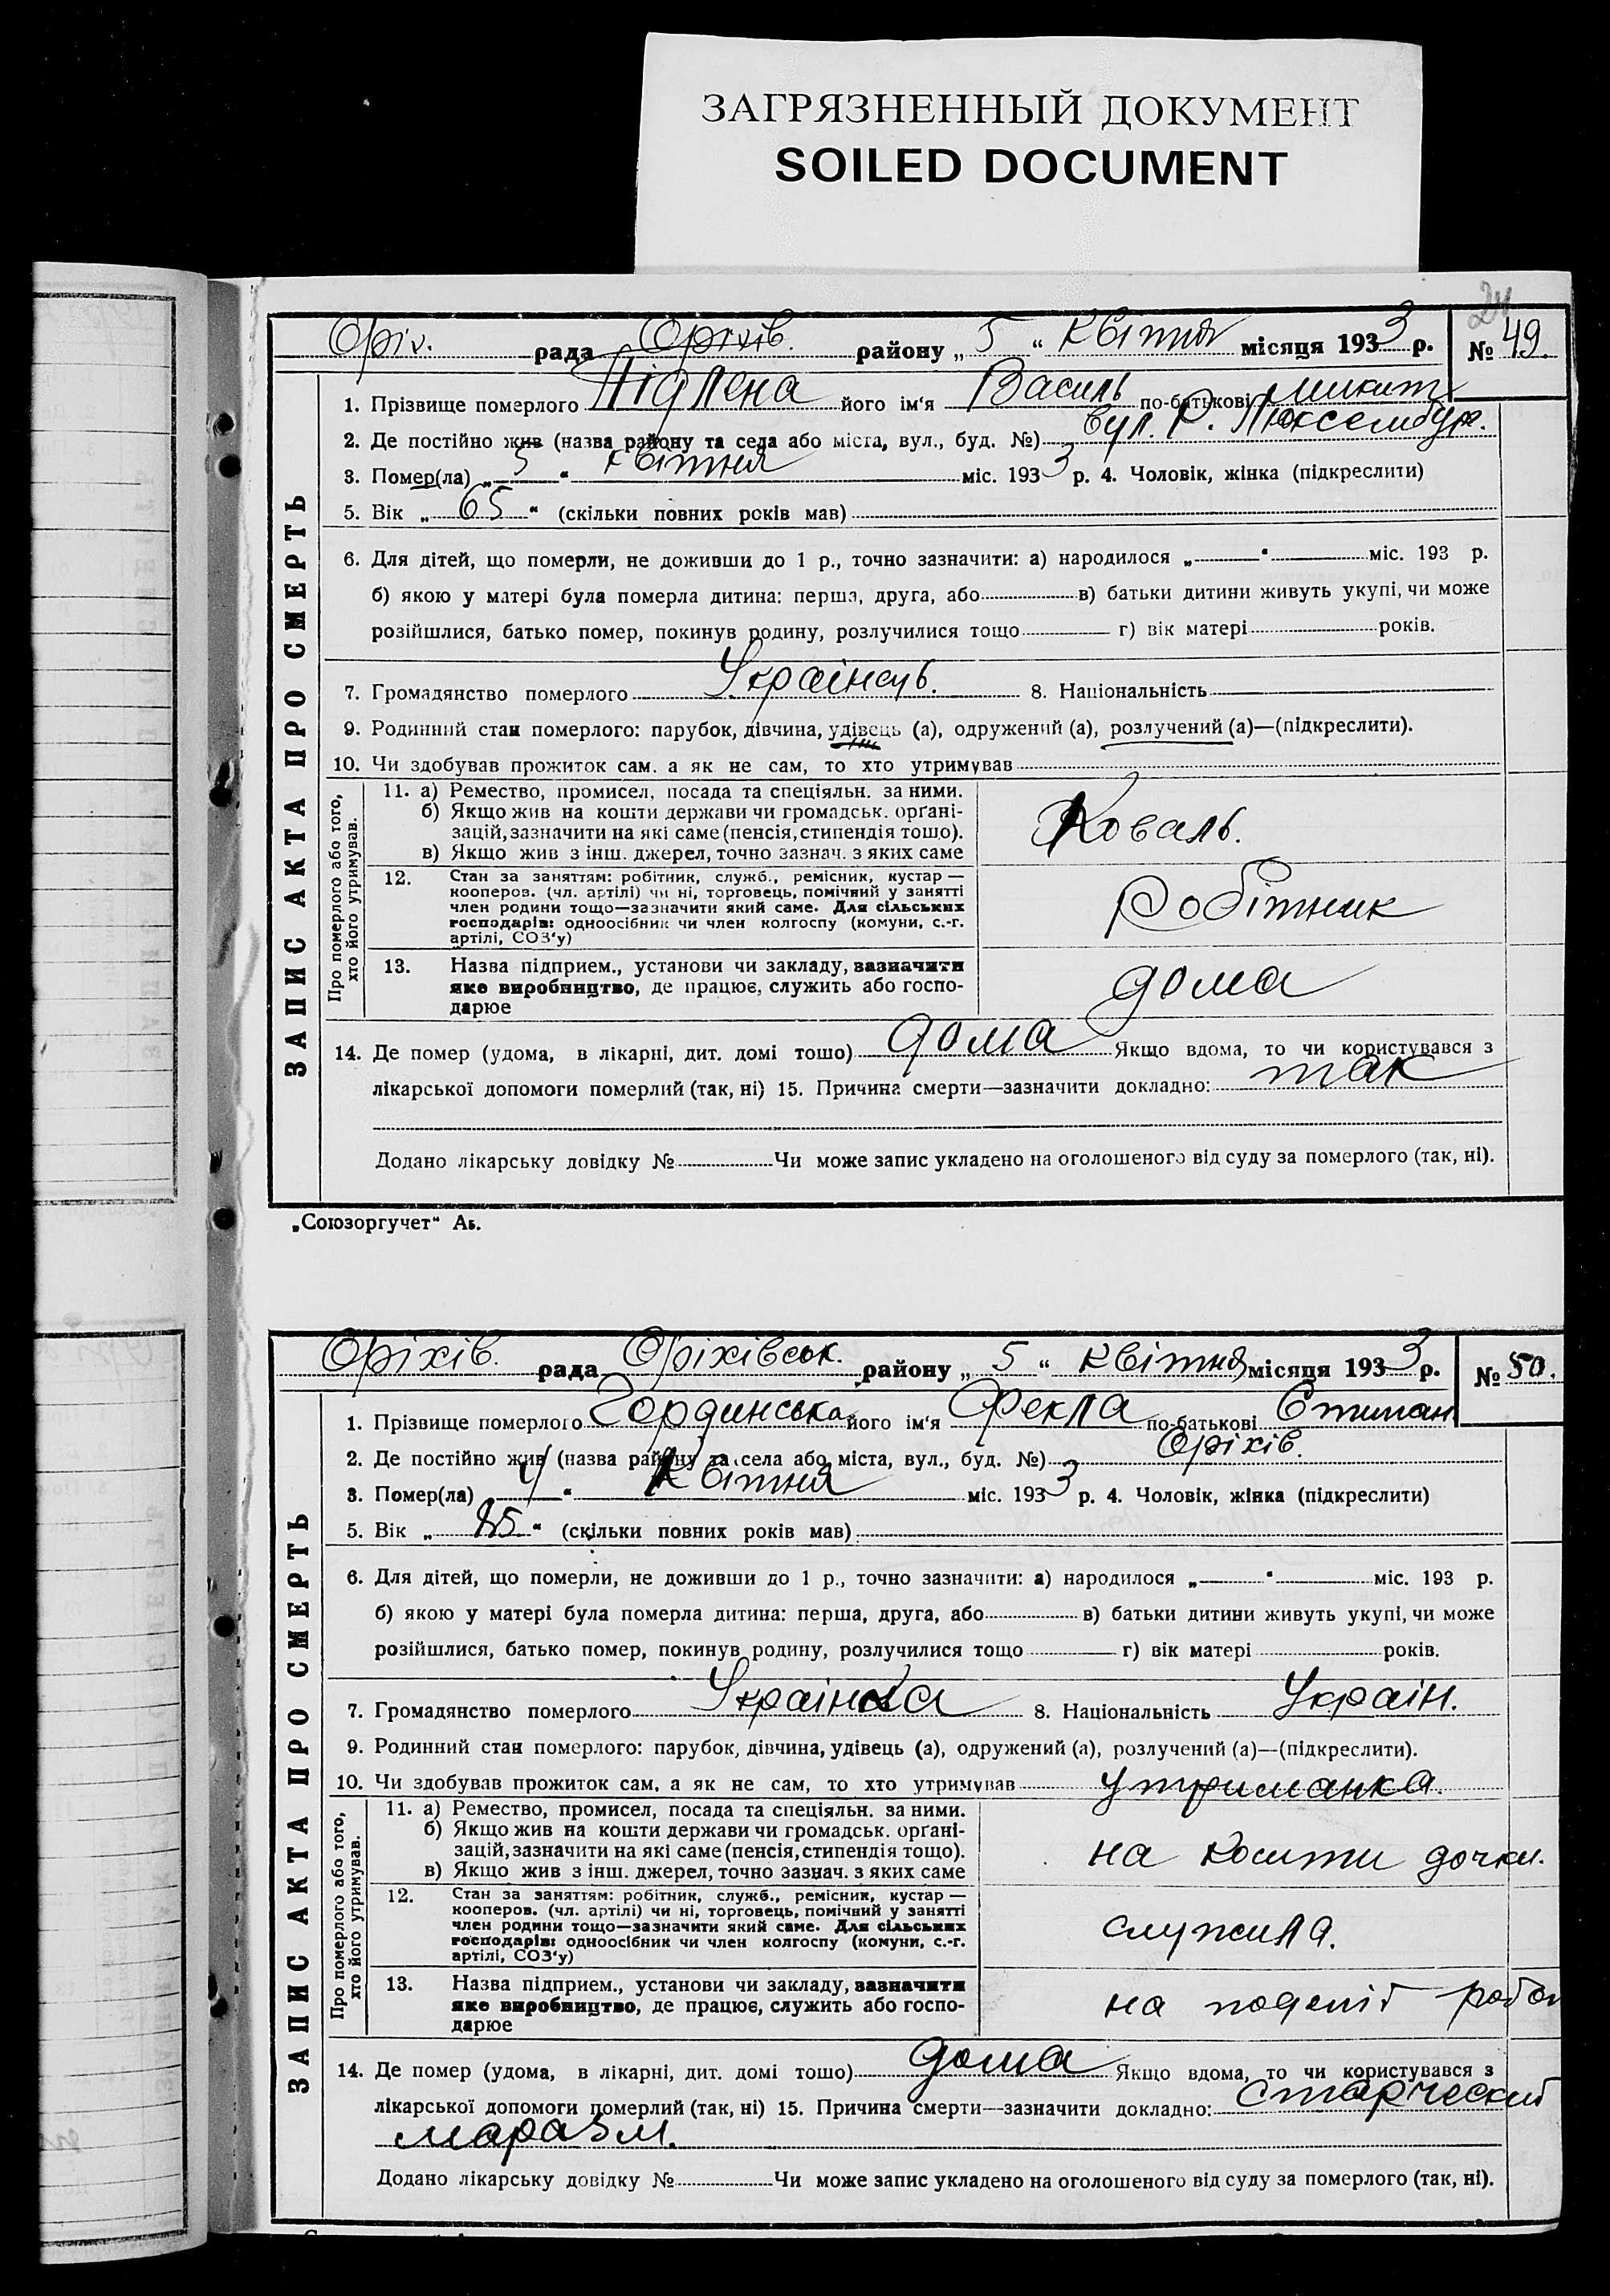 ЗАГРЯЗНЕННЫЙ ДОКУМЕНТ
SOILED DOCUMENT
24
Оріх. рада Оріхів. району „5“ Квітня місяця 1933 р. № 49.
1. Прізвище померлого Підлена його ім‘я Василь по-батькові Микит
2. Де постійно жив (назва району та села або міста, вул., буд. №) вул. Р. Люксембур.
3. Помер(ла) „5“ квітня міс. 1933 р. 4. Чоловік, жінка (підкреслити)
5. Вік „65“ (скільки повних років мав)
6. Для дітей, що померли, не доживши до 1 р., точно зазначити: а) народилося „ “ міс. 193 р.
б) якою у матері була померла дитина: перша, друга, або в) батьки дитини живуть укупі, чи може
розійшлися, батько помер, покинув родину, розлучилися тощо г) вік матері років.
7. Громадянство померлого 8. Національність
9. Родинний стан померлого: парубок, дівчина, удівець (а), одружений (а), розлучений (а)—(підкреслити).
10. Чи здобував прожиток сам. а як не сам, то хто утримував
ЗАПИС АКТА ПРО СМЕРТЬ
Про померлого або того, хто його утримував.
11. а) Ремество, промисел, посада та спеціяльн. за ними.
б) Якщо жив на кошти держави чи громадськ. орґані-
зацій, зазначити на які саме (пенсія, стипендія тощо).
в) Якщо жив з інш. джерел, точно зазнач. з яких саме
Коваль.
12. Стан за заняттям: робітник, служб., ремісник, кустар —
кооперов. (чл. артілі) чи ні, торговець, помічний у занятті
член родини тощо—зазначити який саме. Для сільських
господарів: одноосібник чи член колгоспу (комуни, с.-г.
артілі, СОЗ‘у)
Робітник
13. Назва підприєм., установи чи закладу, зазначити
яке виробництво, де працює, служить або госпо-
дарює
дома
14. Де помер (удома, в лікарні, дит. домі тощо) дома Якщо вдома, то чи користувався з
лікарської допомоги померлий (так, ні) 15. Причина смерти—зазначити докладно: так
Додано лікарську довідку № Чи може запис укладено на оголошеного від суду за померлого (так, ні).
„Союзоргучет“ Аб.
Оріхів. рада Оріхівськ. району „5“ квітня місяця 1933 р. № 50.
1. Прізвище померлого Гординська його ім‘я Фекла по-батькові Стипан
2. Де постійно жив (назва району та села або міста, вул., буд. №) Оріхів.
3. Помер(ла) „4“ Квітня міс. 1933 р. 4. Чоловік, жінка (підкреслити)
5. Вік „85“ (скільки повних років мав)
6. Для дітей, що померли, не доживши до 1 р., точно зазначити: а) народилося „ “ міс. 193 р.
б) якою у матері була померла дитина: перша, друга, або в) батьки дитини живуть укупі, чи може
розійшлися, батько помер, покинув родину, розлучилися тощо г) вік матері років.
7. Громадянство померлого Українка 8. Національність Україн.
9. Родинний стан померлого: парубок, дівчина, удівець (а), одружений (а), розлучений (а)—(підкреслити).
10. Чи здобував прожиток сам. а як не сам, то хто утримував утриманка.
ЗАПИС АКТА ПРО СМЕРТЬ
Про померлого або того, хто його утримував.
11. а) Ремество, промисел, посада та спеціяльн. за ними.
б) Якщо жив на кошти держави чи громадськ. орґані-
зацій, зазначити на які саме (пенсія, стипендія тощо).
в) Якщо жив з інш. джерел, точно зазнач. з яких саме
на кошти дочки.
12. Стан за заняттям: робітник, служб., ремісник, кустар —
кооперов. (чл. артілі) чи ні, торговець, помічний у занятті
член родини тощо—зазначити який саме. Для сільських
господарів: одноосібник чи член колгоспу (комуни, с.-г.
артілі, СОЗ‘у)
служила.
13. Назва підприєм., установи чи закладу, зазначити
яке виробництво, де працює, служить або госпо-
дарює
на поденій робот
14. Де помер (удома, в лікарні, дит. домі тощо) дома Якщо вдома, то чи користувався з
лікарської допомоги померлий (так, ні) 15. Причина смерти—зазначити докладно: старческий
маразм.
Додано лікарську довідку № Чи може запис укладено на оголошеного від суду за померлого (так, ні).